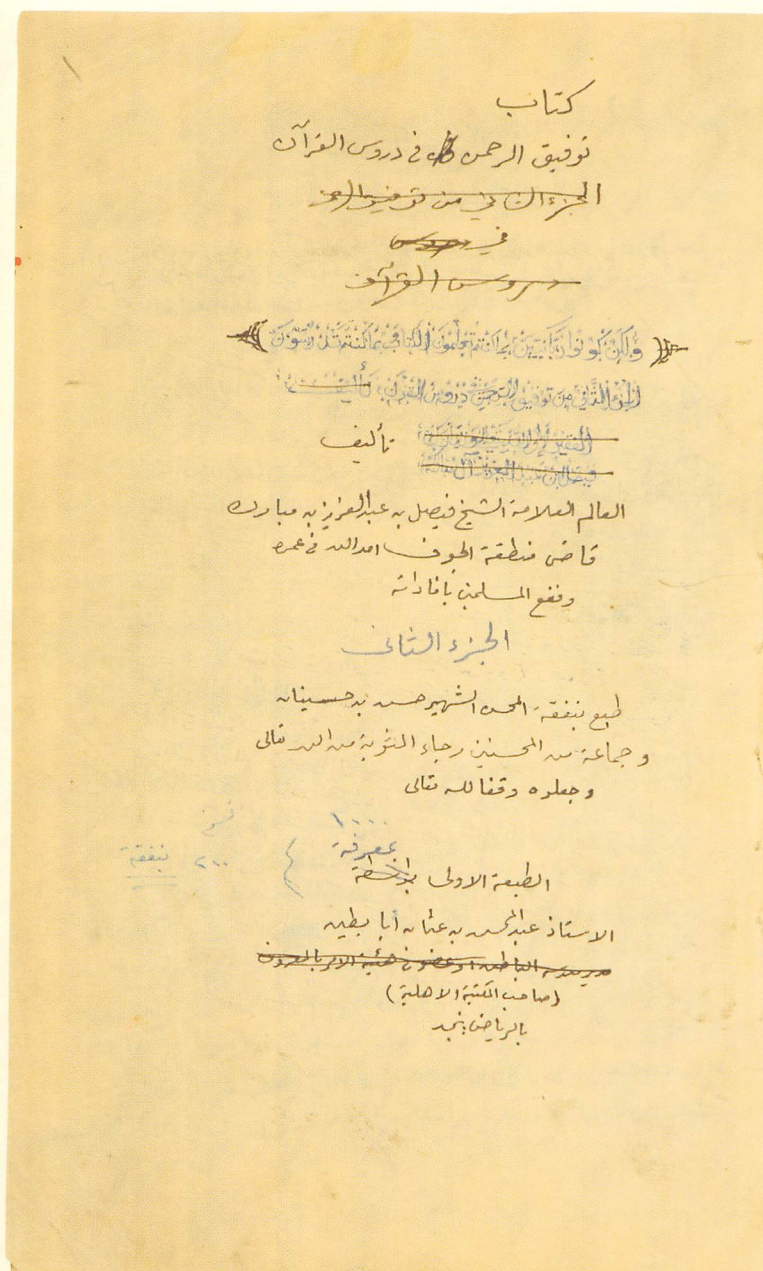 كتاب
توفيق الرحمن في دروس القرآن
الجزء الثاني من توفيق الرحمن
في دروس
دروس القرآن
﴿ولكن كونوا ربانيين بما كنتم تعلمون الكتاب وبما كنتم تدرسون﴾
الجزء الثاني من توفيق الرحمن في دروس القرآن تأليف
الفقير إلى الله تأليف
فيصل بن عبد العزيز آل مبارك
العالم العلامة الشيخ فيصل بن عبد العزيز بن مبارك
قاضي منطقة الجوف امد الله في عمره
ونفع المسلمين بافاداته
الجزء الثاني
طبع بنفقة المحسن الشهير حسن بن حسينان
وجماعة من المحسنين رجاء المثوبة من الله تعالى
وجعلوه وقفا لله تعالى
١٠٠٠٠
بمعرفة
الطبعة الاولى بواسطة
٢٠٠ بنفقة
الاستاذ عبد المحسن بن عثمان أبا بطين
(صاحب المكتبة الاهلية)
بالرياض بنجد